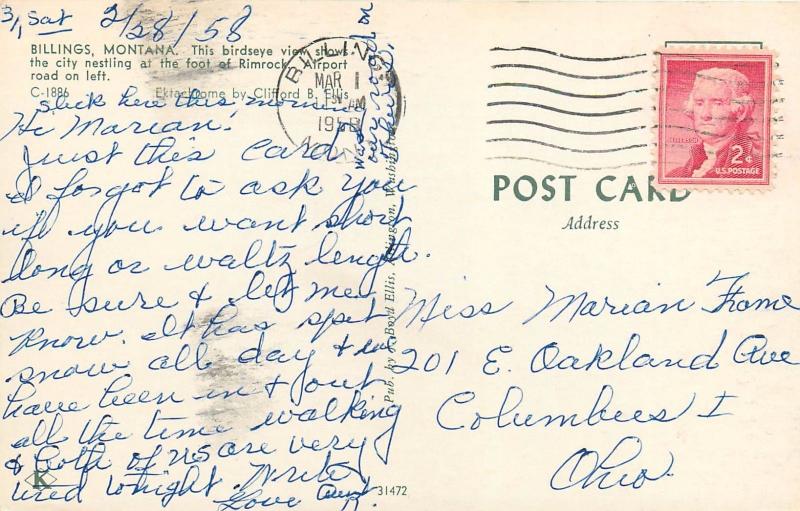 3/1 Sat 2/28/58
BILLINGS, MONTANA. This birdseye view shows
the city nestling at the foot of Rimrock. Airport
road on left.
C-1886 Ektachrome by Clifford B. Ellis
slick here this morning
Hi Marian:
Just this card
I forgot to ask you
if you want short
long or waltz length.
Be sure & let me
know. It has spit
snow all day & we
have been in & out
all the time walking
& both of us are very
tired tonight. Write
Love Aunt
K
31472
Pub. by J. Boyd Ellis, Arlington, Washington
BILLINGS
MAR 1
AM
1958
2¢
U.S. POSTAGE
POST CARD
Address
Miss Marian Frome
201 E. Oakland Ave
Columbus 1
Ohio.